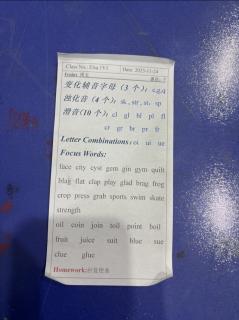 Class No.: Elsa
Date: 2023-11-24
变化辅音字母 (3 个): c,g,q
浊化音 (4 个): sk, str, st, sp
滑音(10 个): cl gl bl pl fl
cr gr br pr fr
Letter Combinations: oi ui ue
Focus Words:
face city cyst gem gin gym quilt
blag flat clap play glad brag frog
crop press grab sports swim skate
strength
oil coin join toil point boil
fruit juice suit blue sue
clue glue
Homework: